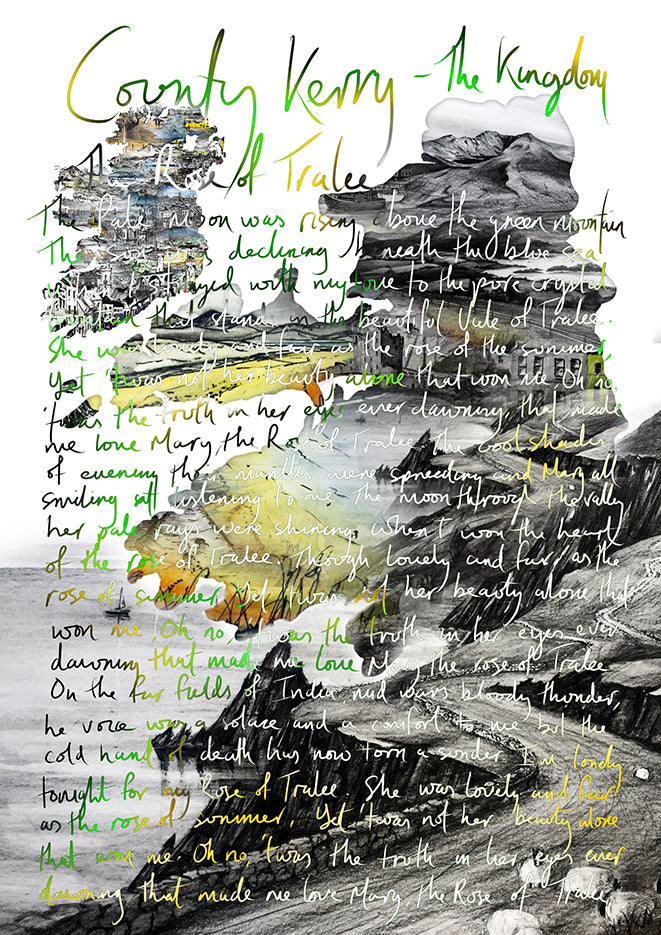 County Kerry - The Kingdom
The Rose of Tralee
The Pale Moon was rising above the green mountain
The sun was declining beneath the blue sea
When I strayed with my love to the pure crystal
fountain that stands in the beautiful Vale of Tralee.
She was lovely and fair as the rose of the summer,
Yet 'twas not her beauty alone that won me Oh no,
'twas the truth in her eyes ever dawning, that made
me love Mary, the Rose of Tralee. The cool shades
of evening their mantles were spreading and Mary all
smiling sat listening to me The moon through the valley
her pale rays were shining When I won the heart
of the rose of Tralee. Though lovely and fair as the
rose of summer Yet 'twas not her beauty alone that
won me Oh no, 'twas the truth in her eyes ever
dawning that made me love Mary the rose of Tralee
On the far fields of India, mid wars bloody thunder,
he voice was a solace and a comfort to me but the
cold hand of death has now torn a sunder I'm lonely
tonight for my Rose of Tralee. She was lovely and fair
as the rose of summer, Yet 'twas not her beauty alone
that won me. Oh no, 'twas the truth in her eyes ever
dawning that made me love Mary, the Rose of Tralee